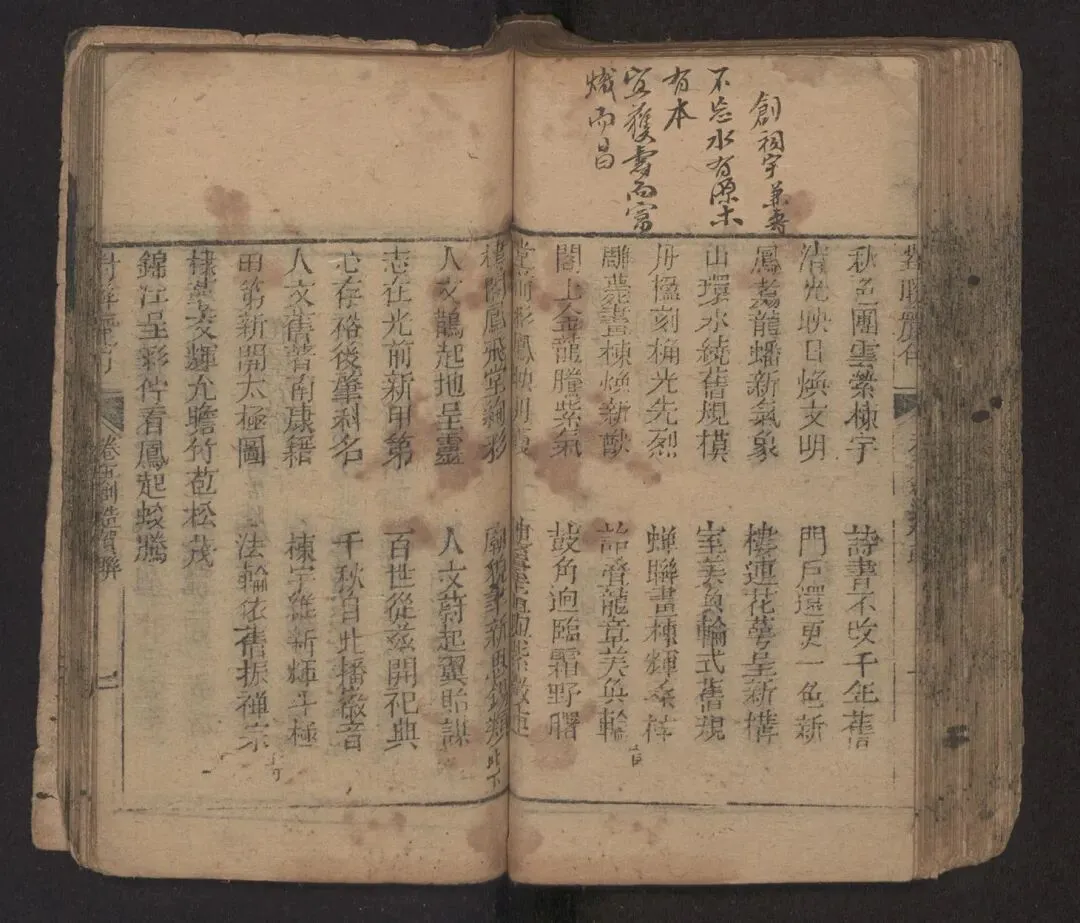 創祠宇兼壽
不忘水有源木
有本
宜獲壽而富
熾而昌
對聯
秋色團雲縈棟宇
詩書不改千年舊
清光映日煥文明
門戶還更一色新
鳳翥龍蟠新氣象
樓連花萼呈新構
山環水繞舊規模
室美奐輪式舊規
丹楹刻桷光先烈
蟬聯畫棟輝
雕甍畫棟煥新猷
龍章美奐輪
閣上金龍騰紫氣
鼓角逈臨霜野曙
樓閣鳳飛堂絢彩
人文鵲起地呈靈
人文蔚起翼貽謀
志在光前新甲第
百世從茲開祀典
心存裕後肇科名
千秋自此播徽音
人文舊著南康籍
棟宇維新輝斗極
甲第新開太極圖
法輪依舊振禪宗
棣萼交輝允瞻竹苞松茂
錦江呈彩佇看鳳起蛟騰
創造賀聯
二